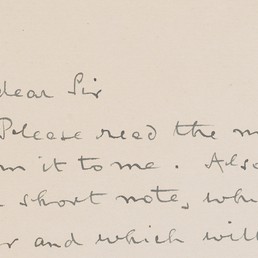 dear Sir
Please read the
it to me. Also
short note,
and which will